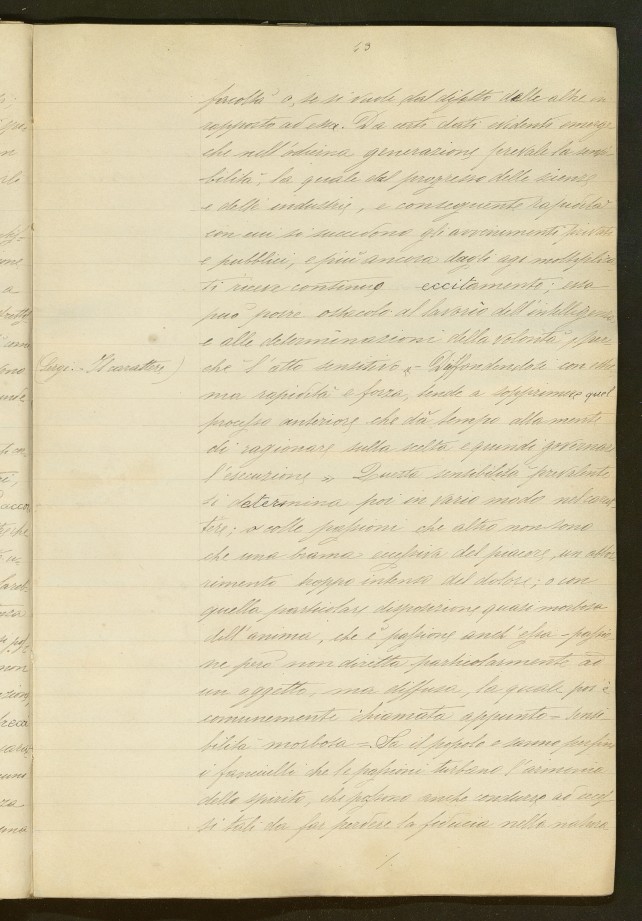 63
facoltà o, se si vuole dal difetto delle altre in
rapporto ad essa. Da certi dati evidente emerge
che nell'odierna generazione prevale la sensi-
bilità, la quale dal progresso delle scienze
e delle industrie, e conseguente rapidità
con cui si succedono gli avvenimenti privati
e pubblici, e più ancora dagli agi moltiplica-
ti riceve continuo eccitamento; essa
può porre ostacolo al lavorio dell'intelligenza
e alle determinazioni della volontà, per-
chè "l'atto sensitivo - diffondendosi con estre-
(Sergi. - Il carattere)
ma rapidità e forza, tende a sopprimere quel
processo anteriore che dà tempo alla mente
di ragionare sulla scelta e quindi governare
l'esecuzione". Questa sensibilità prevalente
si determina poi in vario modo nel carat-
tere; o colle passioni che altro non sono
che una brama eccessiva del piacere, un abor-
rimento troppo intenso del dolore; o con
quella particolare disposizione quasi morbosa
dell'anima, che è passione anch'essa - passio-
ne però non diretta particolarmente ad
un oggetto, ma diffusa, la quale poi è
comunemente chiamata appunto = sensi-
bilità morbosa =. Sa il popolo e sanno perfino
i fanciulli che le passioni turbano l'armonia
dello spirito, che possono anche condurre ad ecces-
si tali da far perdere la fiducia nella natura
./.